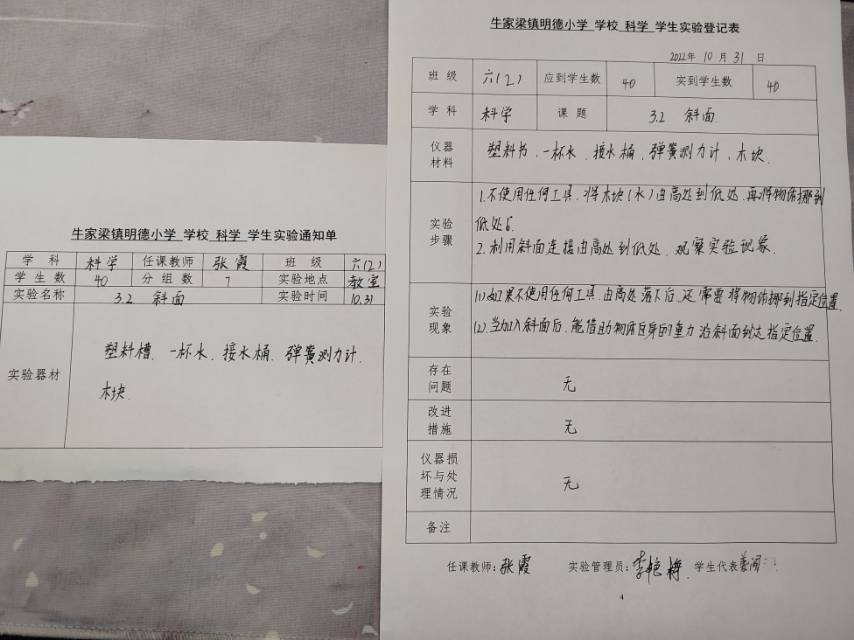 牛家梁镇明德小学 学校 科学 学生实验通知单
学科 科学 任课教师 张霞 班级 六(2)
学生数 40 分组数 7 实验地点 教室
实验名称 3.2 斜面 实验时间 10.31
实验器材 塑料槽、一杯水、接水桶、弹簧测力计、
木块.
牛家梁镇明德小学 学校 科学 学生实验登记表
2022年 10月 31日
班级 六(2) 应到学生数 40 实到学生数 40
学科 科学 课题 3.2 斜面
仪器材料 塑料书、一杯水、接水桶、弹簧测力计、木块.
实验步骤 1.不使用任何工具,将木块(水)由高处到低处,再将物体挪到
低处.
2.利用斜面连接由高处到低处,观察实验现象.
实验现象 (1)如果不使用任何工具,由高处落下后,还需要将物体挪到指定位置.
(2).当加入斜面后,能借助物体自身的重力沿斜面到达指定位置.
存在问题 无
改进措施 无
仪器损坏与处理情况 无
备注
任课教师:张霞 实验管理员:李艳梅 学生代表
4